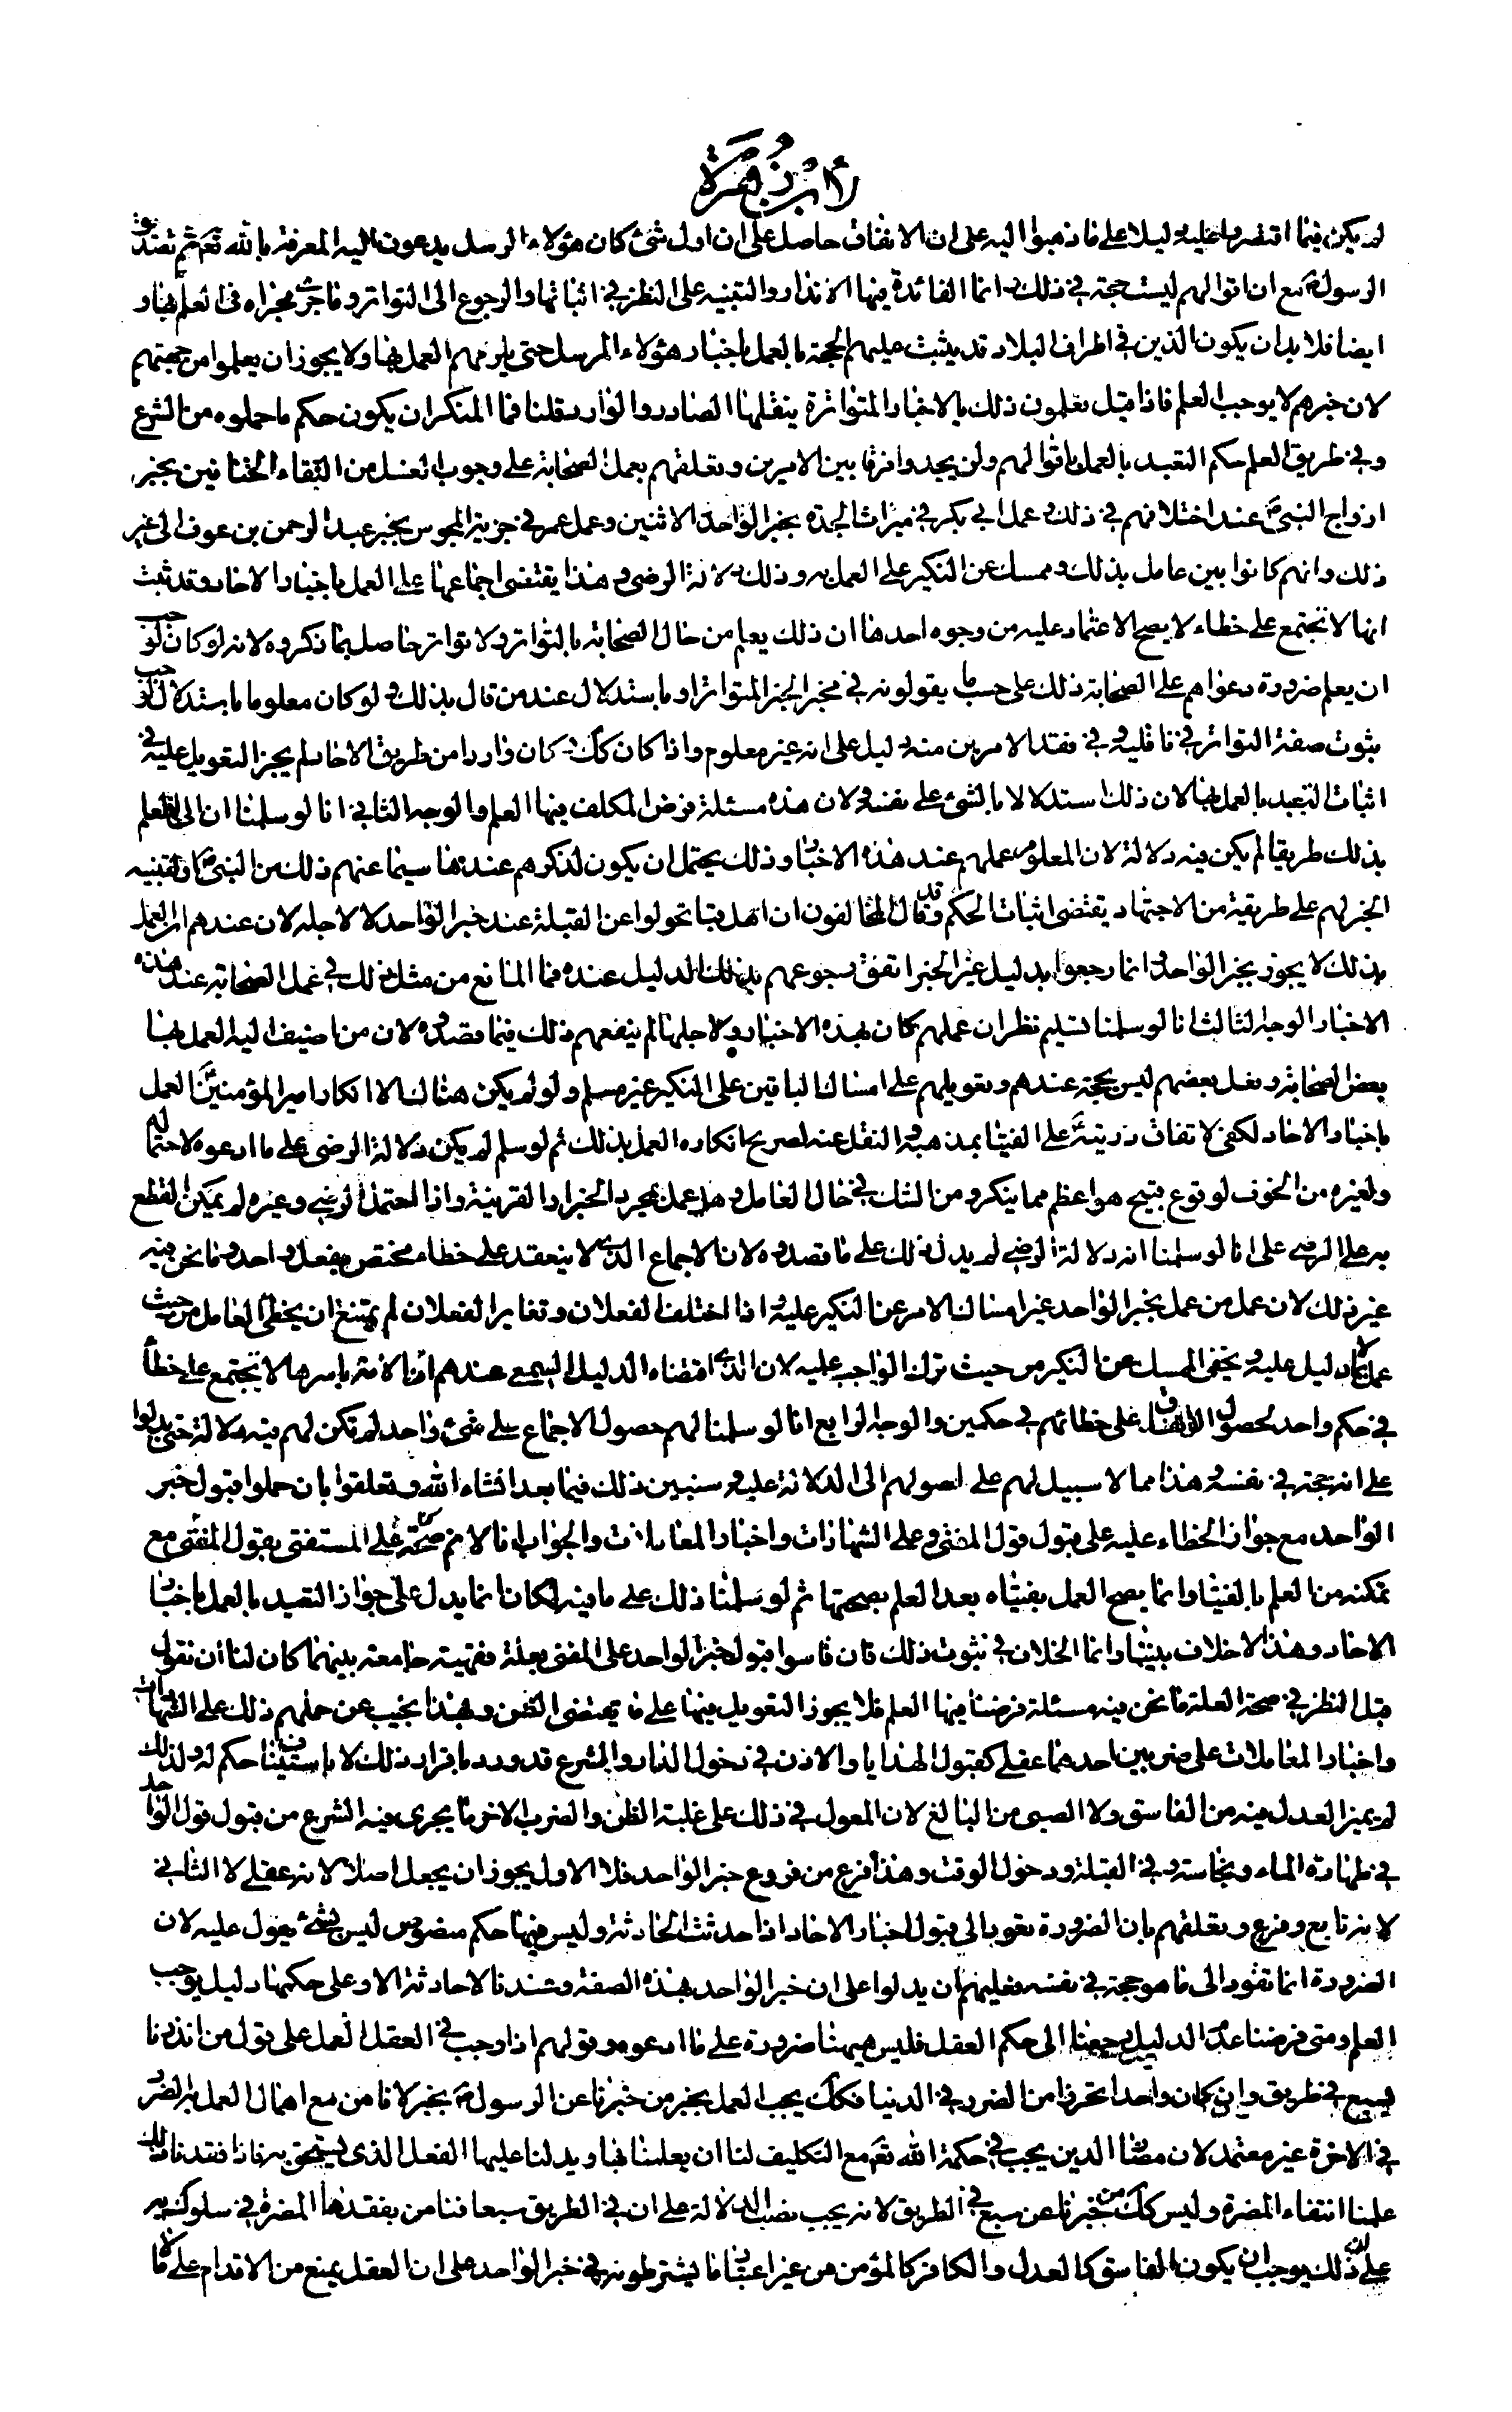 لابن زهرة
لم يكن فيما اقتصر واعليه دليلا على ما ذهبوا اليه على ان الاتفاق حاصل على ان اول شئ كان هؤلاء الرسل يدعون اليه المعرفة بالله تعم ثم تصديق
الرسول ص مع ان اقوالهم ليست حجة في ذلك و انما الفائدة فيها الانذار والتنبيه على النظر في اثباتها والرجوع الى التواتر وما جرى مجراه فى العلم بها و
ايضا فلا بد ان يكون الذين في اطراف البلاد قد يثبت عليهم الحجة بالعمل باخبار هؤلاء المرسل حتى يلزمهم العمل بها ولا يجوز ان يعلموا من جهتهم
لان خبرهم لا يوجب العلم فاذا قيل يعلمون ذلك بالاخبار المتواترة ينقلها الصادر والوارد قلنا فما المنكر ان يكون حكم ما حملوه من الشرع
و في طريق العلم حكم التعبد بالعمل باقوالهم ولن يجدوا فرقا بين الامرين وتعلقهم بعمل الصحابة على وجوب الغسل من التقاء الختانين بخبر
ازواج النبي ص عند اختلافهم في ذلك و عمل ابي بكر في ميراث الجدة بخبر الواحد الاثنين وعمل عمر في جزية المجوس بخبر عبد الرحمن بن عوف الى غير
ذلك وانهم كانوا بين عامل بذلك و ممسك عن النكير على العمل به وذلك دلالة الرضى و هذا يقتضى اجماعها على العمل باخبار الاحاد وقد ثبت
انها لا تجتمع على خطاء لا يصح الاعتماد عليه من وجوه احدها ان ذلك يعلم من حال الصحابة بالتواتر ولا تواتر حاصل بما ذكروه لانه لو كان لوجب
ان يعلم ضرورة دعواهم على الصحابة ذلك على حسب ما يقولونه في مخبر الخبر المتواتر او باستدلال عند من قال بذلك و لو كان معلوما باستدلال لوجب
ثبوت صفة التواتر في ناقليه و في فقد الامرين منه دليل على انه غير معلوم واذا كان كك و كان واردا من طريق الاحاد لم يجز التعويل عليه في
اثبات التعبد بالعمل بها لان ذلك استدلالا بالشئ على نفسه ولان هذه مسئلة فرض المكلف فيها العلم والوجه الثاني انا لو سلمنا ان الى العلم
بذلك طريقا لم يكن فيه دلالة لان المعلوم عملهم عند هذه الاخبار وذلك يحتمل ان يكون لذكرهم عندها سيما عنهم ذلك من النبي ص او تنبيه
الخبر لهم على طريقة من الاجتهاد يقتضى اثبات الحكم وقد قال المخالفون ان اهل قبا تحولوا عن القبلة عند خبر الواحد لا لاجله لان عندهم ان العمل
بذلك لا يجوز بخبر الواحد و انما رجعوا بدليل غير الخبر اتفق رجوعهم بذلك الدليل عنده فما المانع من مثل ذلك في عمل الصحابة عند هذه
الاخبار الوجه الثالث انا لو سلمنا تسليم نظر ان عملهم كان بهذه الاخبار ولاجلها لم ينفعهم ذلك فيما قصدوه لان من اضيف اليه العمل بها
بعض الصحابة وفعل بعضهم ليس بحجة عندهم وتعويلهم على امساك الباقين على النكير غير مسلم ولو لم يكن هناك الا انكار امير المؤمنين ع العمل
باخبار الاحاد لكفى لاتفاق ذريته ع على الفتيا بمذهبه و النقل عنه لصريح انكاره العمل بذلك ثم لو سلم لم يكن دلالة الرضى على ما ادعوه لاحتماله
ولغيره من الخوف لوقوع قبيح هو اعظم مما ينكر و من الشك في حال العامل و هل عمل بمجرد الخبر او القرينة واذا احتمل الرضى و غيره لم يمكن القطع
به على الرضى على انا لو سلمنا انه دلالة الرضى لم يدل ذلك على ما قصدوه لان الاجماع الذى لا ينعقد على خطاء مختص بفعل واحد وما نحن فيه
غير ذلك لان عمل من عمل بخبر الواحد غير امساك الامر عن النكير عليه و اذا اختلف الفعلان وتغاير الفعلان لم يمتنع ان يخطئ العامل من حيث
عمل بما لا دليل عليه و يخطى الممسك عن النكير من حيث ترك الواجب عليه لان الذى اقتضاه الدليل السمعى عندهم ان الامة باسرها لا تجتمع على خطأ
في حكم واحد لحصول الاتفاق على خطائهم في حكمين والوجه الرابع انا لو سلمنا لهم حصول الاجماع على شئ واحد لم تكن لهم فيه دلالة حتى يدلوا
على انه حجة في نفسه و هذا مما لا سبيل لهم على اصولهم الى الدلالة عليه و سنبين ذلك فيما بعد انشاء الله و تعلقوا بان حملوا قبول خبر
الواحد مع جواز الخطاء عليه على قبول قول المفتى و على الشهادات واخبار المعاملات والجواب انا لا نم صحته على المستفتى بقول المفتى مع
تمكنه من العلم بالفتيا وانما يصح العمل بفتياه بعد العلم بصحتها ثم لو سلمنا ذلك على ما فيه لكان انما يدل على جواز التعبد بالعمل باخبار
الاحاد وهذا لا خلاف بيننا وانما الخلاف في ثبوت ذلك فان قاسوا قبول خبر الواحد على المفتى بعلة فقهية جامعة بينهما كان لنا ان نقول
قبل النظر في صحة العلة ما نحن فيه مسئلة فرضنا فيها العلم فلا يجوز التعويل فيها على ما يقتضى الظن و بهذا نجيب عن حملهم ذلك على الشهادات
واخبار المعاملات على ضربين احدهما عقلي كقبول الهدايا والاذن في دخول الدار والشرع قد ورد باقرار ذلك لا باستيناف حكم له و لذلك
لم يميز العدل فيه من الفاسق ولا الصبى من البالغ لان المعول في ذلك على غلبة الظن والضرب الاخر ما يجرى فيه الشرع من قبول قول الواحد
في طهارة الماء ونجاسته و في القبلة ودخول الوقت وهذا فرع من فروع خبر الواحد فلا الاول يجوز ان يجعل اصلا لانه عقلي لا الثاني
لانه تابع وفرع و تعلقهم بان الضرورة تقود الى قبول اخبار الاحاد اذا حدثت الحادثة وليس فيها حكم منصوص ليس بشئ يعول عليه لان
الضرورة انما تقود الى ما هو حجة في نفسه فعليهم ان يدلوا على ان خبر الواحد بهذه الصفة وعندنا لا حادثة الا وعلى حكمها دليل يوجب
العلم ومتى فرضنا عدم الدليل رجعنا الى حكم العقل فليس ههنا ضرورة على ما ادعوه و قولهم اذا وجب في العقل العمل على قول من انذرنا
بسبع في طريق وان كان واحدا تحرزا من الضرر في الدنيا فكك يجب العمل بخبر من خبرنا عن الرسول ص بخبر لا نامن مع اهمال العمل به الضرر
في الاخرة غير معتمد لان مضار الدين يجب في حكمة الله تعم مع التكليف لنا ان يعلمنا بها ويدلنا عليها الفعل الذى يستحق به فاذا فقدنا ذلك
علمنا انتفاء المضرة وليس كك من خبرنا عن سبع في الطريق لانه يجب نصب الدلالة على ان في الطريق سبعا فنامن بفقدها المضرة في سلوكه
على ان ذلك يوجب ان يكون الفاسق كالعدل والكافر كالمؤمن من غير اعتبار ما يشترطونه في خبر الواحد على ان العقل يمنع من الاقدام على ما لا